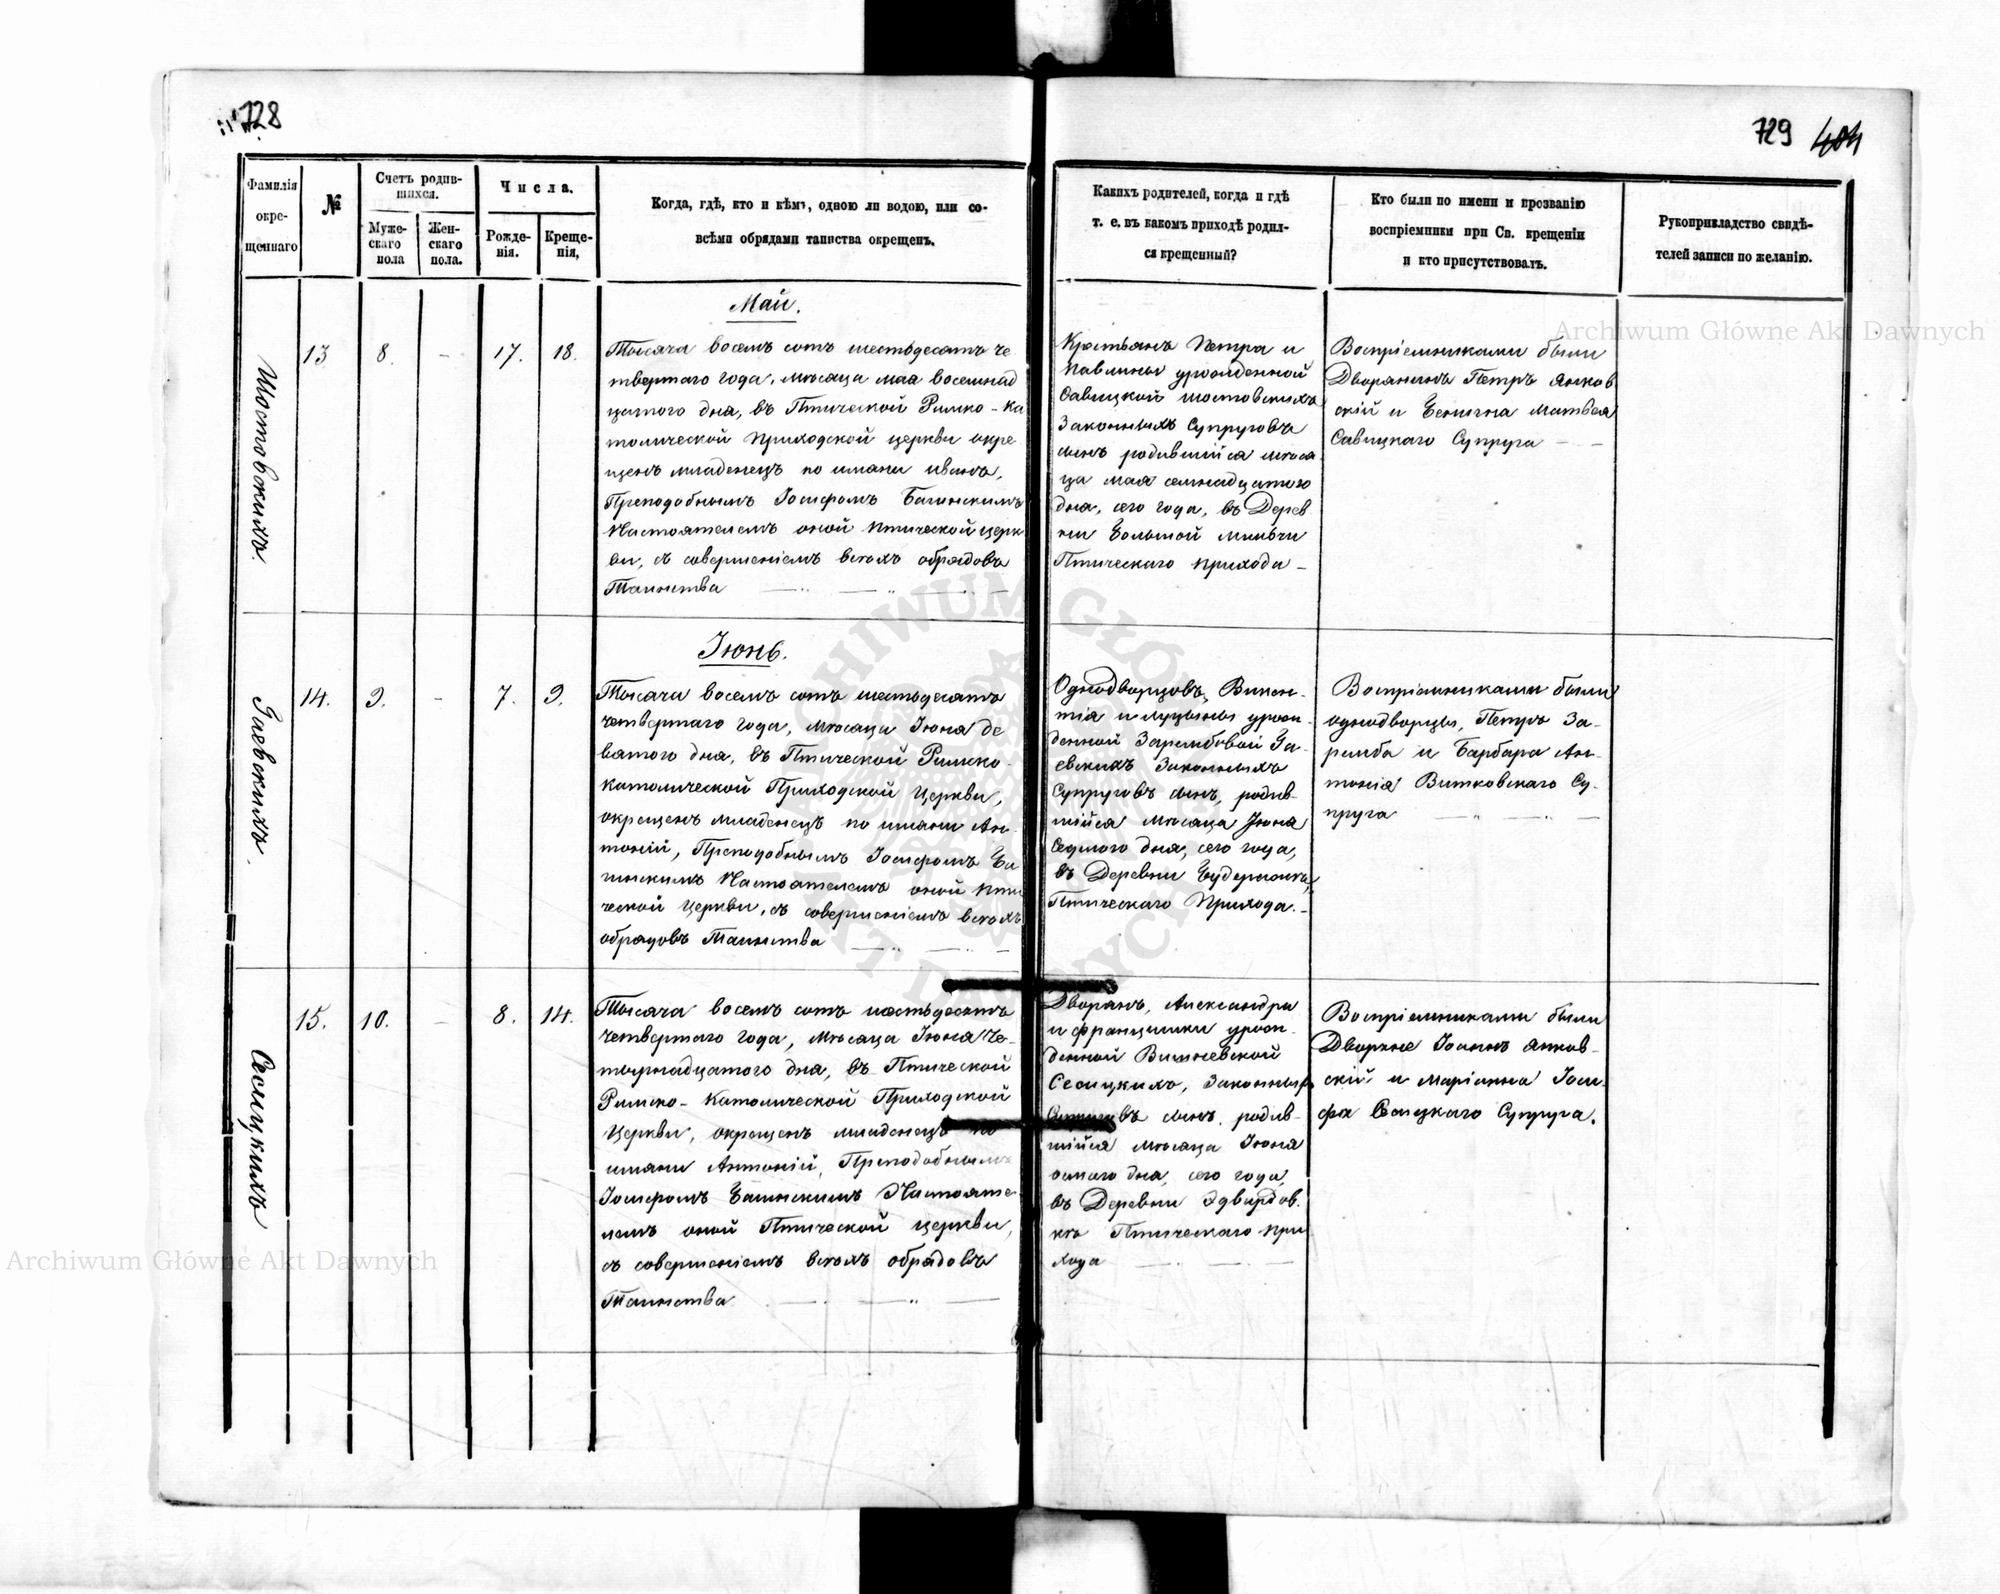 728
729 404
Фамилія
окре-
щеннаго
№
Счетъ родив-
шихся.
Муже-
скаго
пола
Жен-
скаго
пола.
Числа.
Рожде-
нія.
Креще-
нія,
Когда, гдѣ, кто и кѣмъ, одною ли водою, или со-
всѣми обрядами таинства окрещенъ.
Какихъ родителей, когда и гдѣ
т. е. въ какомъ приходѣ родил-
ся крещенный?
Кто были по имени и прозванію
воспріемники при Св. крещеніи
и кто присутствовалъ.
Рукоприкладство свидѣ-
телей записи по желанію.
Май.
Шостовскихъ
13 8. – 17. 18.
Тысяча восемъ сотъ шестьдесятъ че
твертаго года, мѣсяца мая восемнад
цатого дня, въ Птической Римско-Ка
толической Приходской церкви окре
щенъ младенецъ по имени Иванъ,
Преподобнымъ Іосифомъ Багинскимъ
Настоятелемъ оной Птической церк
ви, съ совершеніемъ всѣхъ обрядовъ
Таинства
Крестьянъ Петра и
Павлины урожденной
Савицкой Шостовскихъ
Законныхъ Супруговъ
сынъ родившійся мѣся
ца мая семнадцатого
дня, сего года, въ Дерев
ни Большой
Птическаго прихода –
Воспріемниками были
Дворянинъ Петръ Янков
скій и Бенигна Матвея
Савицкаго Супруга
Іюнь.
Гаевскихъ.
14. 9. – 7. 9.
Тысяча восемъ сотъ шестьдесятъ
четвертаго года, мѣсяца Іюня де
вятого дня, въ Птической Римско-
католической Приходской Церкви,
окрещенъ младенецъ по имени Ан-
тоній, Преподобнымъ Іосифомъ Ба
гинскимъ Настоятелемъ оной Пти
ческой Церкви, съ совершеніемъ всѣхъ
обрядовъ Таинства
Однодворцовъ, Викен-
тія и Луцыны урож-
денной Зарембовой Га-
евскихъ Законныхъ
Супруговъ сынъ, родив-
шійся Мѣсяца Іюня
Седмого дня, сего года,
въ Деревни
Птическаго Прихода. –
Воспріемниками были
однодворцы, Петръ За-
ремба и Барбара Ан-
тонія Витковскаго Су-
пруга
Сесицкихъ
15. 10. – 8. 14.
Тысяча восемъ сотъ шестьдесятъ
четвертаго года, Мѣсяца Іюня Че-
тырнадцатого дня, въ Птической
Римско-Католической Приходской
Церкви, окрещенъ младенецъ по
имени Антоній, Преподобнымъ
Іосифомъ Багинскимъ Настояте-
лемъ оной Птической церкви,
съ совершеніемъ всѣхъ обрядовъ
Таинства
Дворянъ, Александра
и Францишки урож-
денной Вишневской
Сесицкихъ, Законныхъ
Супруговъ сынъ, родив-
шійся Мѣсяца Іюня
осмого дня, сего года,
въ Деревни Эдвардов-
кѣ Птическаго При
хода
Воспріемниками были
Дворяне Іоаннъ Янков-
скій и Маріанна Іоси-
фа Сесицкаго Супруга.
Archiwum Główne Akt Dawnych
Archiwum Główne Akt Dawnych
ARCHIWUM GŁÓWNE AKT DAWNYCH